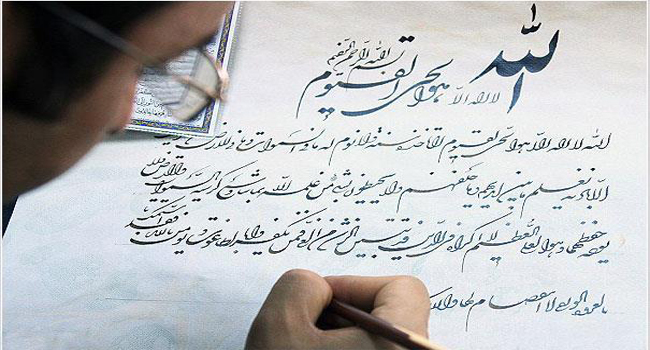 بسم الله الرحمن الرحیم
الله لا اله الا هو الحی القیوم
الله لا اله الا هو الحی القیوم لا تاخذه سنة و لا نوم له ما فی السموات و ما فی الارض
الا باذنه یعلم ما بین ایدیهم و ما خلفهم و لا یحیطون بشیء من علمه الا بما شاء وسع کرسیه السموات و الارض و لا
یوده حفظهما و هو العلی العظیم لا اکراه فی الدین قد تبین الرشد من الغی فمن یکفر بالطاغوت و یومن بالله فقد استمسک
بالعروة الوثقی لا انفصام لها والله